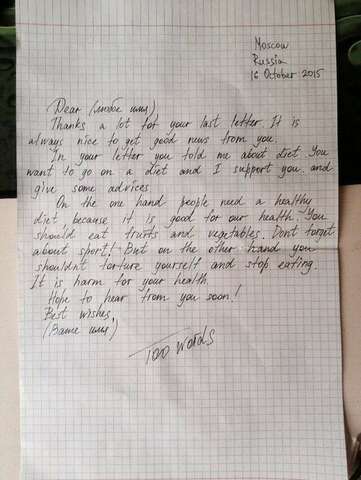 Moscow
Russia
16 October 2015
Dear (любое имя)
Thanks a lot for your last letter. It is
always nice to get good news from you.
In your letter you told me about diet. You
want to go on a diet and I support you. and
give some advices.
On the one hand people need a healthy
diet because it is good for our health. You
should eat fruits and vegetables. Dont forget
about sport! But on the other hand you
shouldnt torture yourself and stop eating.
It is harm for your health
Hope to hear from you soon!
Best wishes,
(Ваше имя)
words